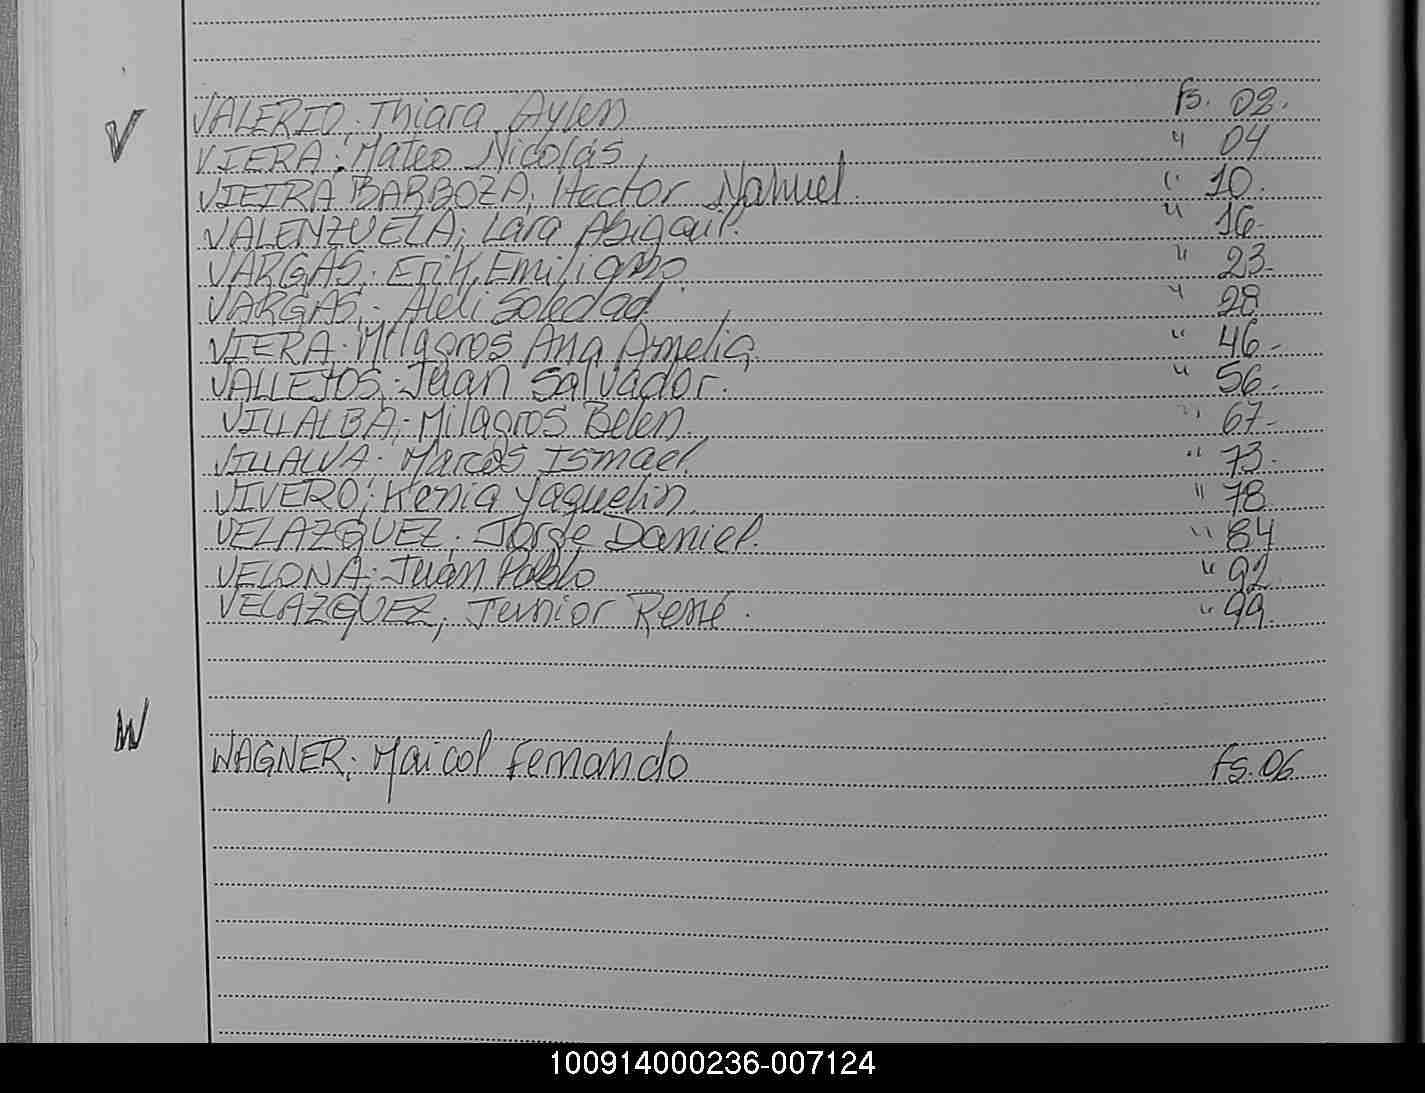 V
VALERIO; Thiara Aylen fs. 02.
VIERA; Mateo Nicolás " 04
VIEIRA BARBOZA; Hector Nahuel. " 10.
VALENZUELA; Lara Abigail. " 16-
VARGAS; Erik Emiliano " 23-
VARGAS; Aleli Soledad " 28
VIERA. Milagros Ana Amelia. " 46-
VALLEJOS; Juan Salvador. " 56-
VILLALBA; Milagros Belen. " 67-
VILLALVA. Marcos Ismael " 73-
VIVERO; Kenia Yaquelin " 78
VELAZQUEZ; Jorge Daniel. " 84
VELONA; Juan Pablo " 92
VELAZQUEZ, Junior René. " 99.
W
WAGNER; Maicol Fernando fs. 06
100914000236-007124